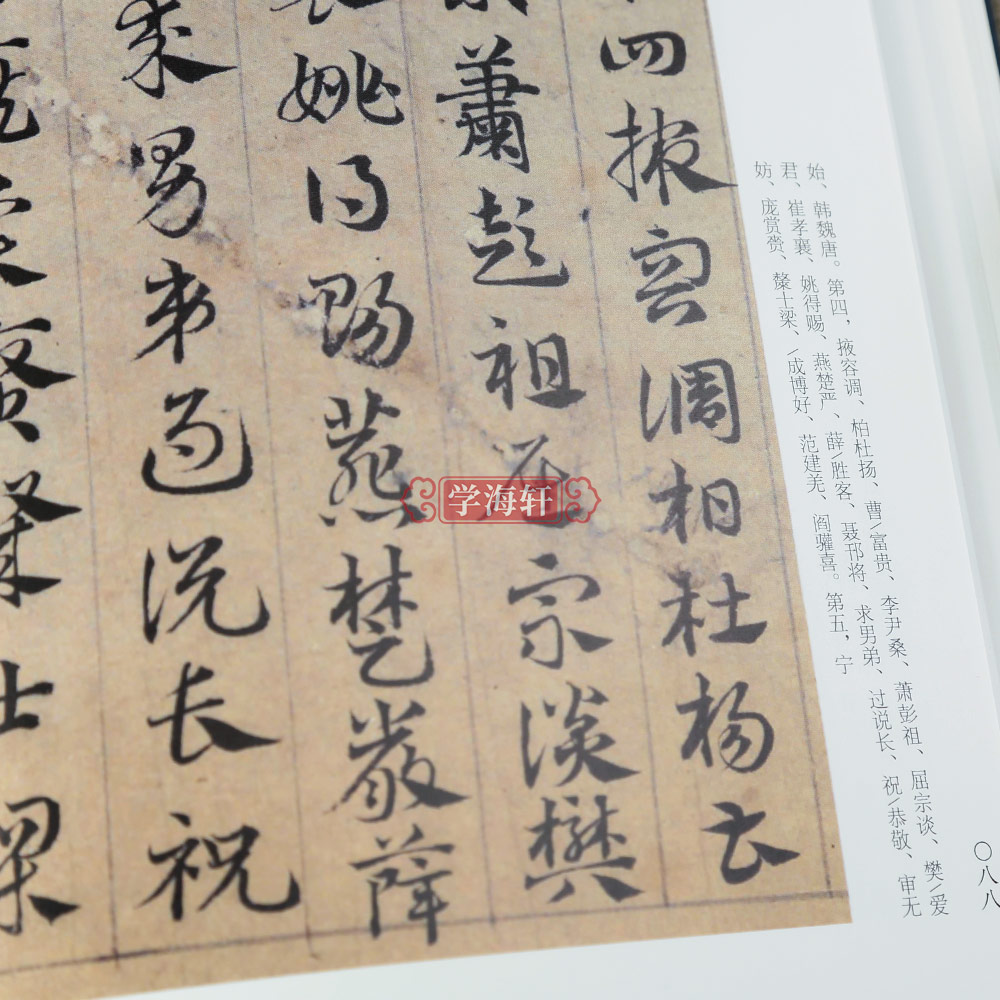 四掖容調柏杜楊曹
蕭彭祖屈宗談樊
姚得賜燕楚嚴薛
求男弟過說長祝
士梁
始、韩魏唐。第四，掖容调、柏杜扬、曹/富贵、李尹桑、萧彭祖、屈宗谈、樊/爱
君、崔孝襄、姚得赐、燕楚严、薛/胜客、聂邗将、求男弟、过说长、祝/恭敬、审无
妨、庞赏赍、士梁、/成博好、范建羌、阎驩喜。第五，宁
〇八八
学海轩